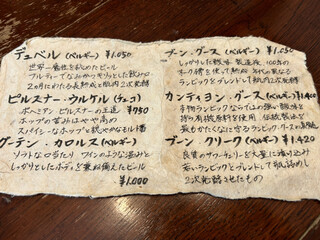 デュベル (ベルギー) ¥1,050
世界一魔性を秘めたビール
フルーティでなめらか
2ヵ月にわたる長期熟成と瓶内2次発酵
ピルスナー・ウルケル (チェコ)
ボヘミアン・ピルスナーの王道 ¥950
ホップの苦みはやや高め
スパイシーなホップと軟やかなモルト香
グーテン・カロルス (ベルギー)
ソフトな口当たり ワインのような温みと
しっかりとしたボディを兼ね備えたビール
¥1,000
ブーン・グース (ベルギー) ¥1,050
しっかりした酸味 製造後、100%の
オーク樽を使して熟成 年代の異なる
ランビックをブレンドして瓶内2次発酵
カンティヨン・グース (ベルギー) ¥1,400
手作りランビックならではの強い酸味を
持つ 有機原料を使用し 伝統製法を
最もかたくなに守るランビック・グースの異端児
ブーン クリーク (ベルギー) ¥1,420
良質のサワーチェリーを大量に漬け込み
若いランビックとブレンドして瓶詰めし
2次発酵させたもの